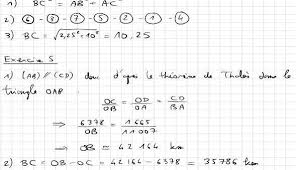 1) BC² = AB² + AC²
2) ⑥ - ⑧ - ⑦ - ⑤ - ② - ① - ④
3) BC = √2,25² + 10² = 10,25
Exercice 5
1) (AB) // (CD) donc d'après le théorème de Thalès dans le
triangle OAB
OC/OB = OD/OA = CD/BA
⇒ 6378/OB = 1665/11007
⇒ OB ≈ 42 164 km
2) BC = OB - OC = 42 164 - 6378 = 35786 km